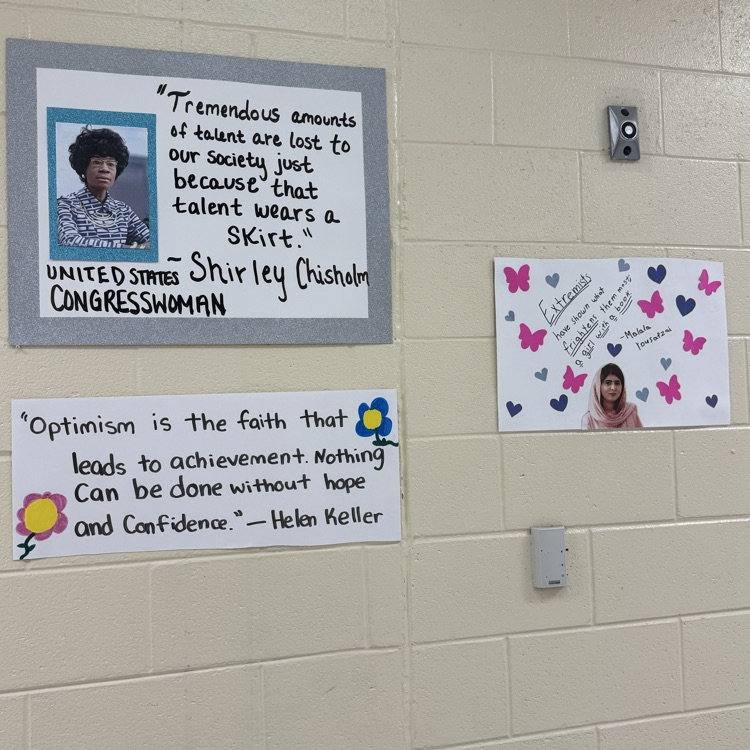 "Tremendous amounts
of talent are lost to
our society just
because that
talent wears a
skirt."
~ Shirley Chisholm
UNITED STATES
CONGRESSWOMAN
"Optimism is the faith that
leads to achievement. Nothing
can be done without hope
and Confidence." — Helen Keller
Extremists
have shown what
frightens them most:
a girl with a book.
~Malala
Yousafzai